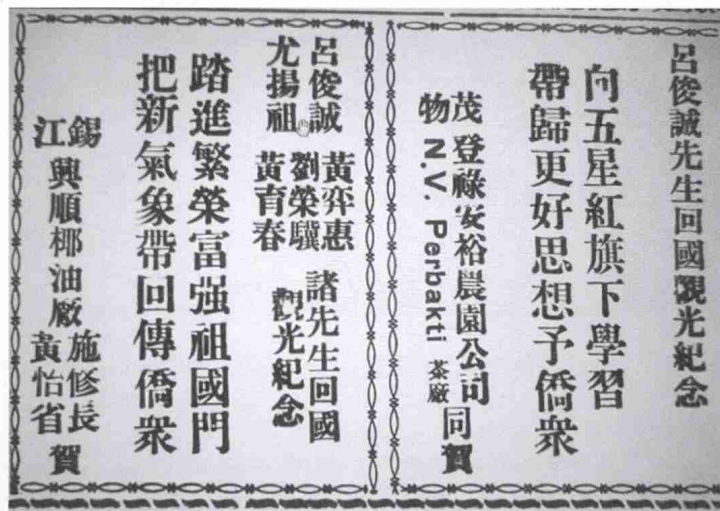 呂俊誠先生回國觀光紀念
向五星紅旗下學習
帶歸更好思想予僑衆
茂物
登祿安裕農園公司
N.V. Perbakti 茶廠
同賀
呂俊誠
尤揚祖
黃弈惠
劉榮驥
黃育春
諸先生回國
觀光紀念
踏進繁榮富强祖國門
把新氣象帶回傳僑衆
錫江
興順椰油廠
施修長
黃怡省
賀